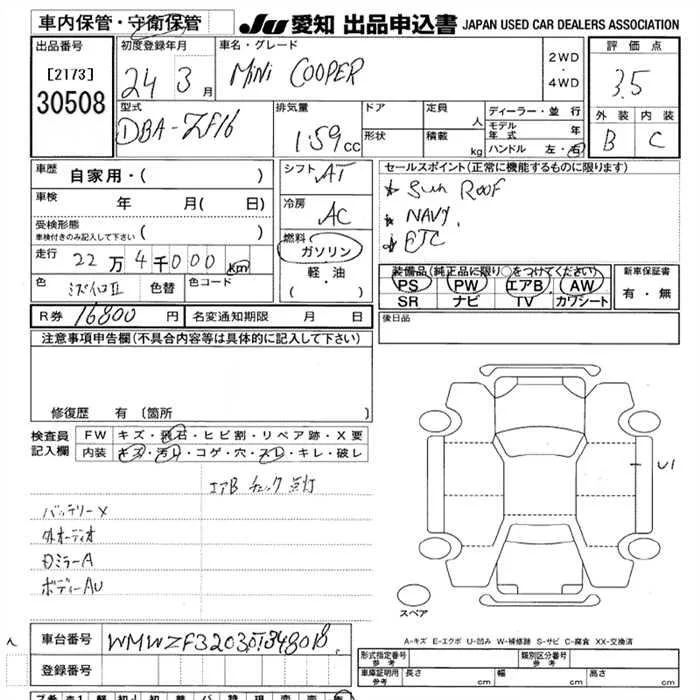 車内保管・守衛保管
JU 愛知 出品申込書 JAPAN USED CAR DEALERS ASSOCIATION
出品番号 初度登録年月 車名・グレード 2WD・4WD 評価点
[2173]
30508
24 3月
MINI COOPER
3.5
型式 排気量 ドア 定員 人 ディーラー・並行
DBA-ZF16 1.59cc
形状 積載 kg モデル年式 年
ハンドル 左・右
外装 内装
B C
車歴 自家用・( )
シフト AT
セールスポイント(正常に機能するものに限ります)
Sun ROOF
NAVI
ETC
車検 年 月( 日)
冷房 AC
受検形態
車検付きのみ記入して下さい
燃料 ガソリン
軽・油
・( )
走行 22万4千000km
色 色替 色コード
装備品(純正品に限り○をつけてください) 新車保証書
PS PW エアB AW 有・無
SR ナビ TV カワシート
R券 16800円 名変通知期限 月 日
後日品
注意事項申告欄(不具合内容等は具体的に記入して下さい)
修復歴 有 〔箇所 〕
検査員記入欄
FW キズ・飛石・ヒビ割・リペア跡・X要
内装 キズ・汚レ・コゲ・穴・スレ・キレ・破レ
エアB チェック 点灯
バッテリーX
外オーディオ
ミラーA
ボディーAU
U1
スペア
A-キズ E-エクボ U-凹み W-補修跡 S-サビ C-腐食 XX-交換済
車台番号
登録番号
形式指定番号 参考 類別区分番号 参考
車庫証明用 参考 長さ cm 幅 cm 高さ cm